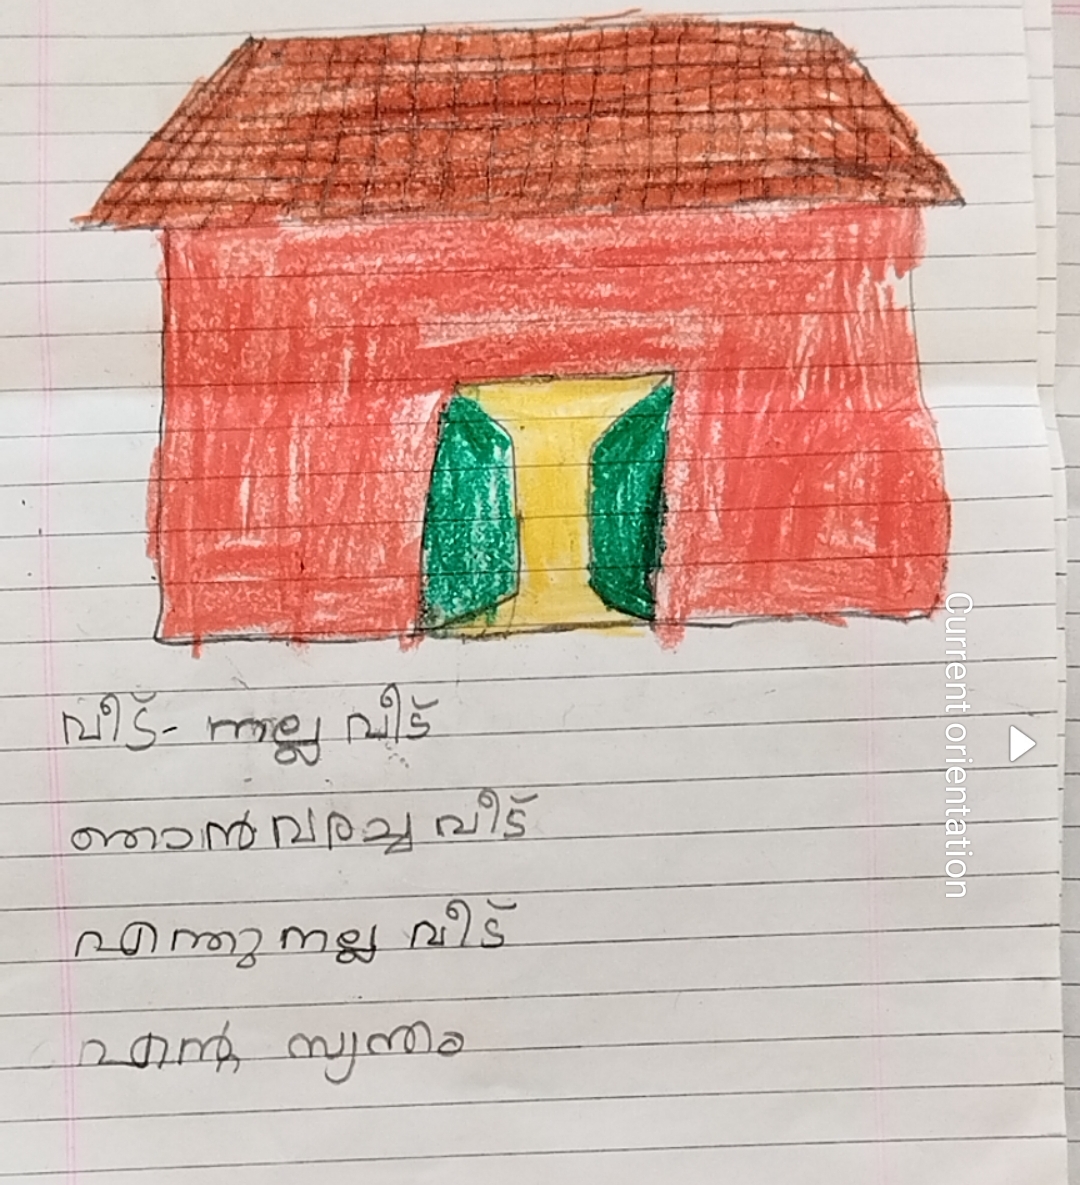 വീട്- നല്ല വീട്
ഞാൻ വരച്ച വീട്
എന്തു നല്ല വീട്
എന്റെ സ്വന്തം
Current orientation